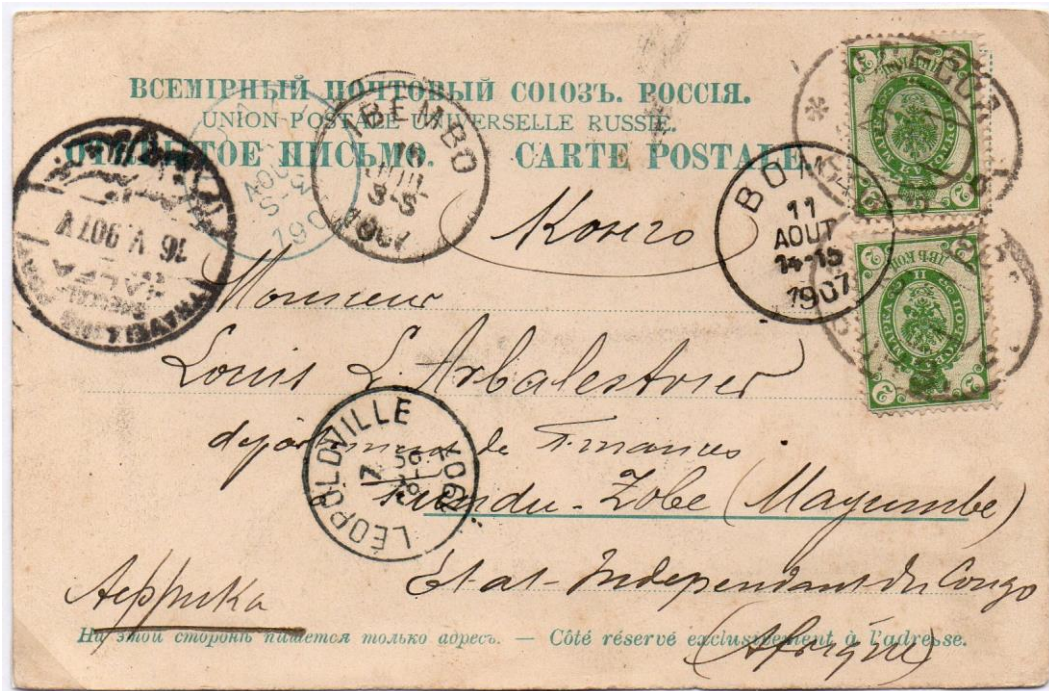 ВСЕМІРНЫЙ ПОЧТОВЫЙ СОЮЗЪ. РОССІЯ.
UNION POSTALE UNIVERSELLE RUSSIE.
ОТКРЫТОЕ ПИСЬМО. CARTE POSTALE
IBEMBO
1907
TRAVELLING POST
HALFA
16 V 907
BOMA
11
AOUT
14-15
1907
Конго
Monsieur
Louis L. Arbalestrier
département de Finances
LÉOPOLDVILLE
1907
Zobe (Mayumbe)
Etat-Independant du Congo
Аффрика
(Afrique)
На этой сторонѣ пишется только адресъ. — Côté réservé exclusivement à l'adresse.